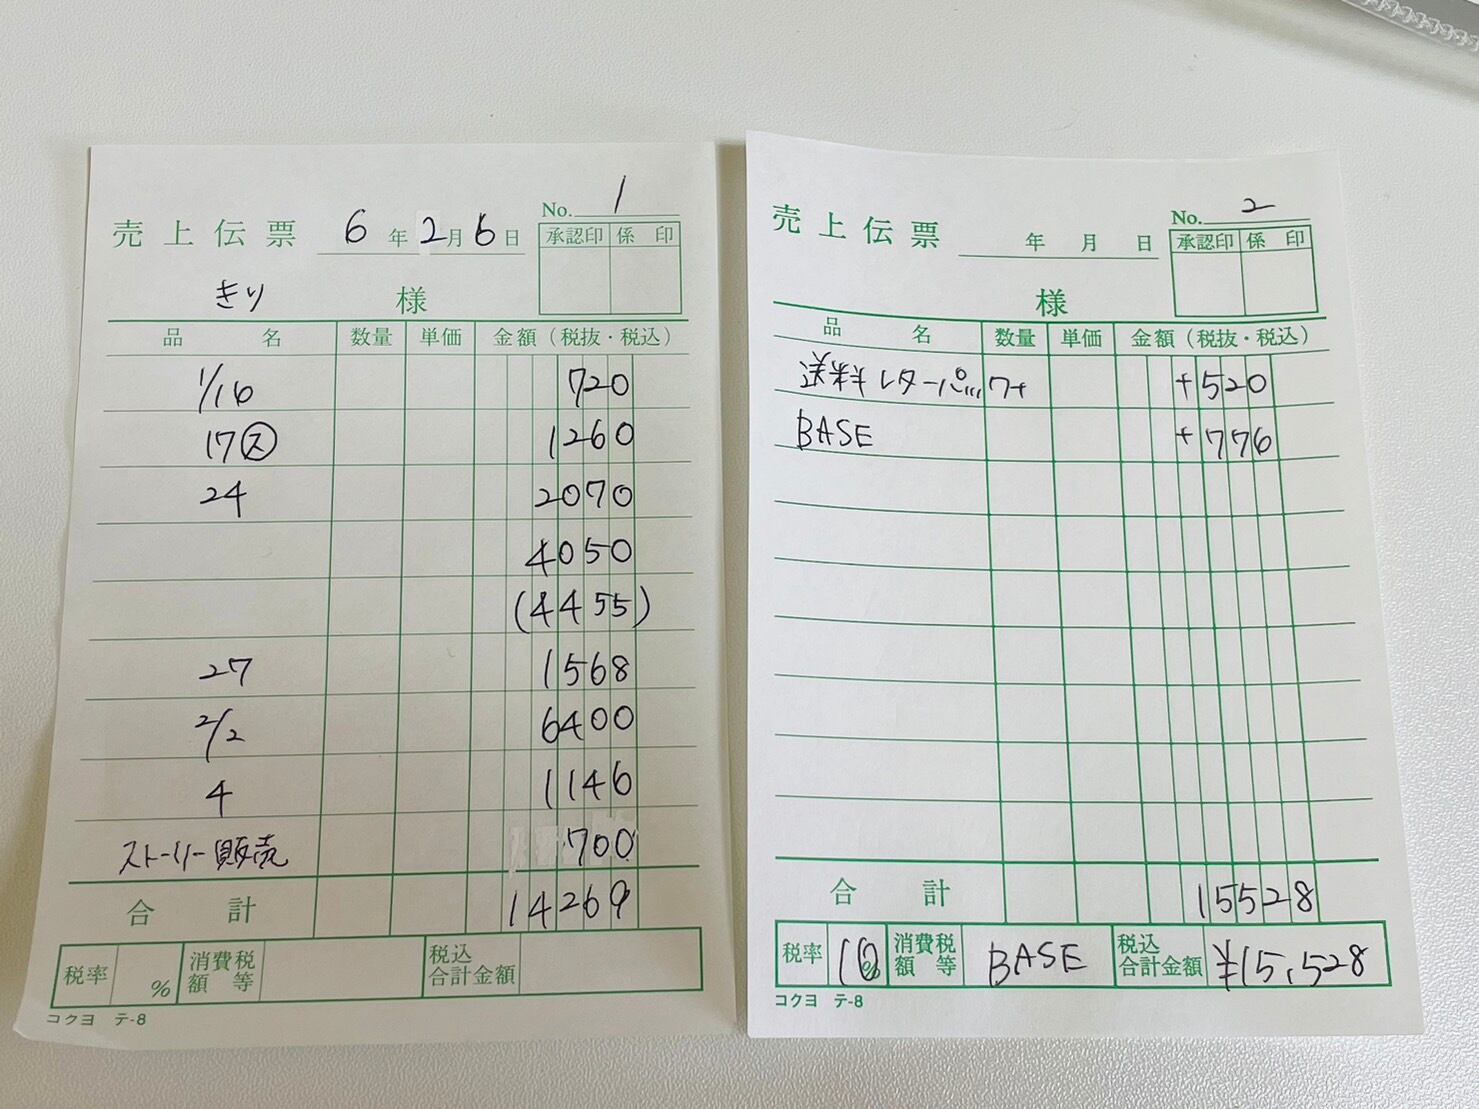 売上伝票 6年2月6日 No. 1
承認印 係印
きり 様
品名 数量 単価 金額（税抜・税込）
1/16 720
17㋜ 1260
24 2070
4050
(4455)
27 1568
2/2 6400
4 1146
ストーリー販売 700
合計 14269
税率 % 消費税額等 税込合計金額
コクヨ テ-8
売上伝票 年 月 日 No. 2
承認印 係印
様
品名 数量 単価 金額（税抜・税込）
送料レターパック +520
BASE +776
合計 15528
税率 10% 消費税額等 BASE 税込合計金額 ¥15,528
コクヨ テ-8